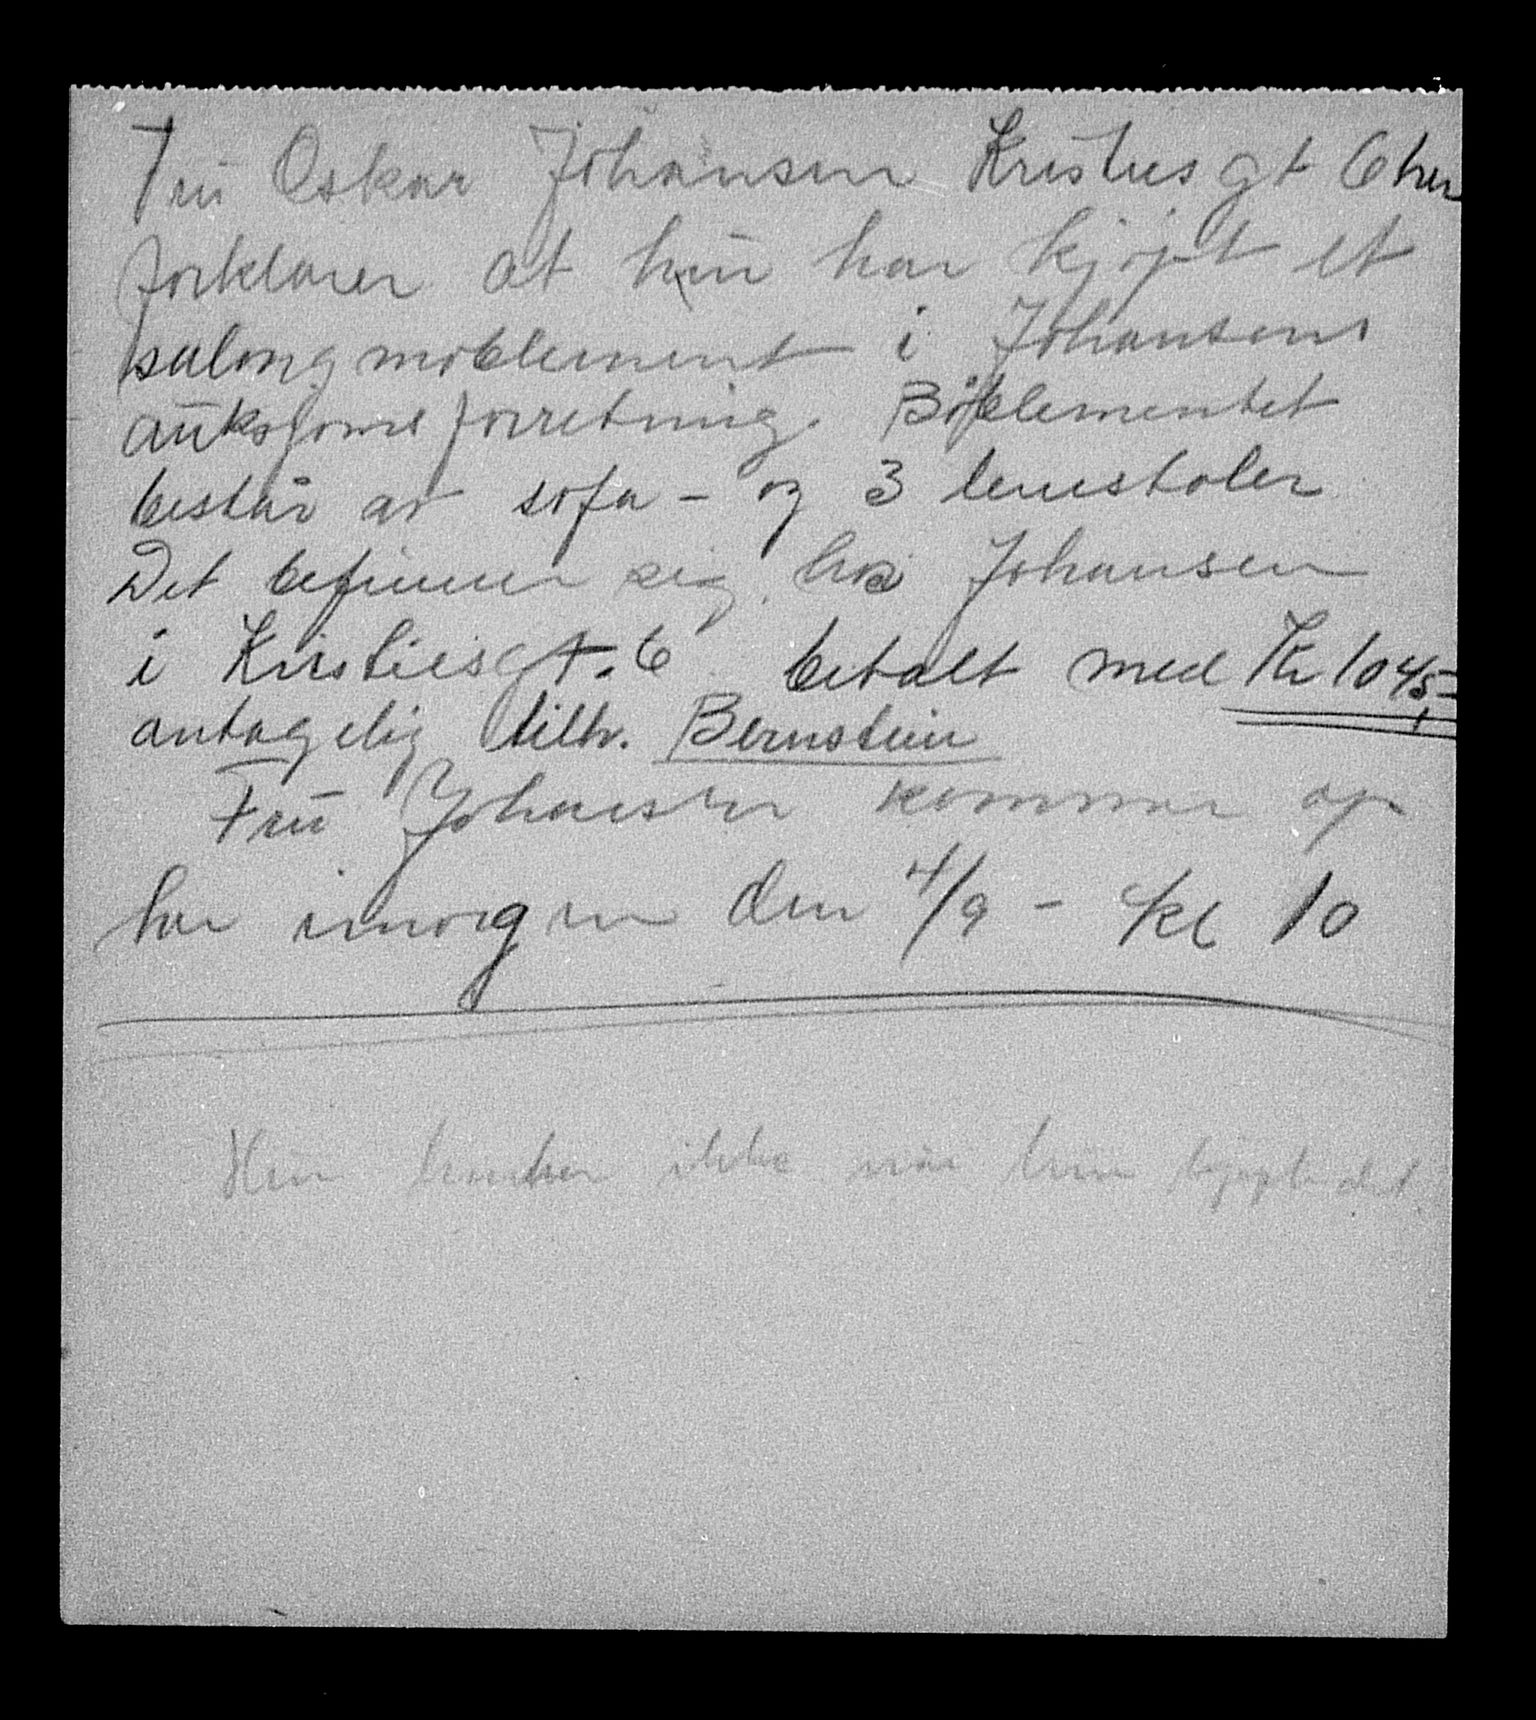 Fru Oskar Johansen Kristies gt 6 her
forklarer at hun har kjøpt et
salongmøblement i Johansens
auksjons forretning. Böblementet
består av sofa - og 3 lenestoler
Det befinner sig hos Johansen
i Kristiesgt. 6 betalt med Kr 1045,-
antagelig tilh. Bernstein
Fru Johansen kommer op
her imorgen den 4/9 - Kl 10
Hun husker ikke når hun kjøpte det